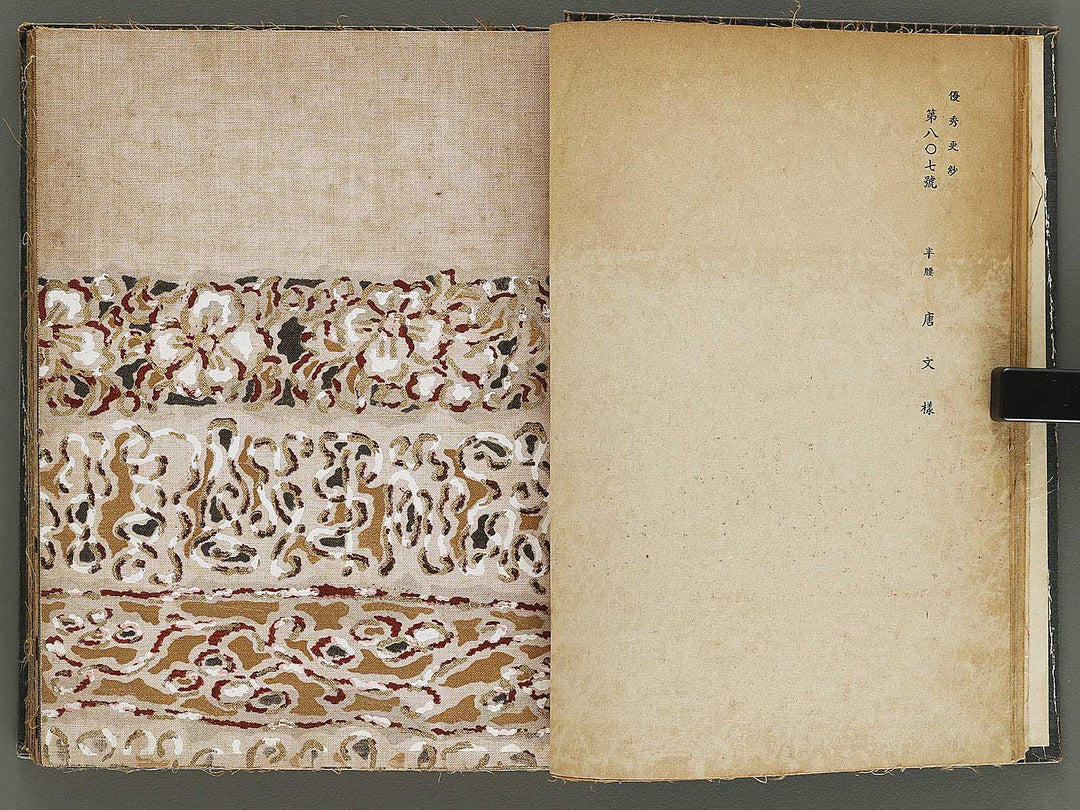 優秀更紗
第八〇七號
半腰 唐文樣